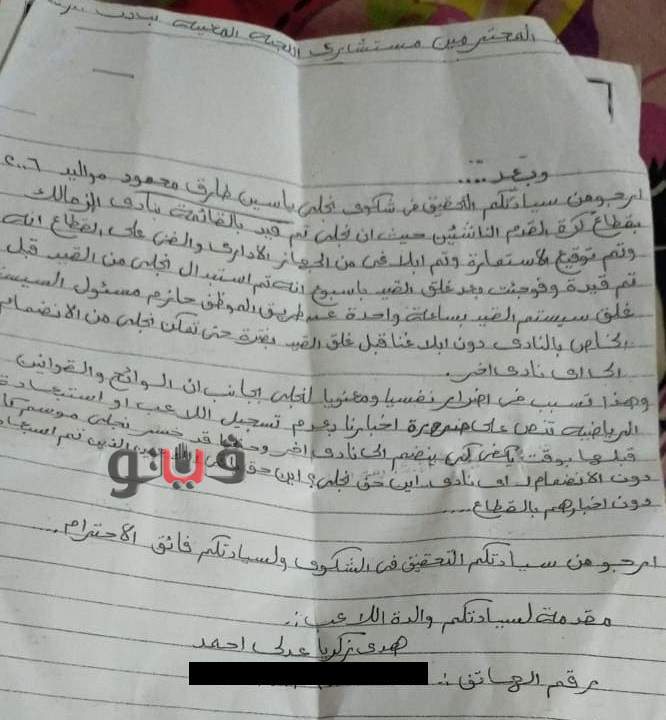 المحترمين مستشارى اللجنة المعينة
وبعد....
ارجو من سيادتكم التحقيق فى شكوى نجلى ياسين طارق محمود مواليد ٢٠٠٦
بقطاع كرة القدم الناشئين حيث ان نجلى تم قيد بالقائمة بنادى الزمالك
وتم توقيع الاستمارة وتم ابلاغى من الجهاز الادارى والفنى على القطاع انه
تم قيدة وفوجئت بعد غلق القيد باسبوع انه تم استبدال نجلى من القيد قبل
غلق سيستم القيد بساعة واحدة عن طريق الموظف حازم مسئول السيستم
الخاص بالنادى دون ابلاغنا قبل غلق القيد بفترة حتى تمكن نجلى من الانضمام
الى اى نادى اخر.
وهذا تسبب فى اضرار نفسيا ومعنويا لنجلى بجانب ان الوائح والقوانين
الرياضية تنص على ضرورة اخبارنا بعدم تسجيل اللاعب او استبعادة
قبلها بوقت يكفى لكى ينضم الى نادى اخر قد خسر نجلى موسم
دون الانضمام لـ اى نادى. اين حق نجلى؟ اين حق الذين تم استبعاد
دون اخبارهم بالقطاع....
فيتو
ارجو من سيادتكم التحقيق فى الشكوى ولسيادتكم فائق الاحترام..
مقدمة لسيادتكم والدة اللاعب :.
هدى زكريا عدلى احمد
رقم الهاتف :